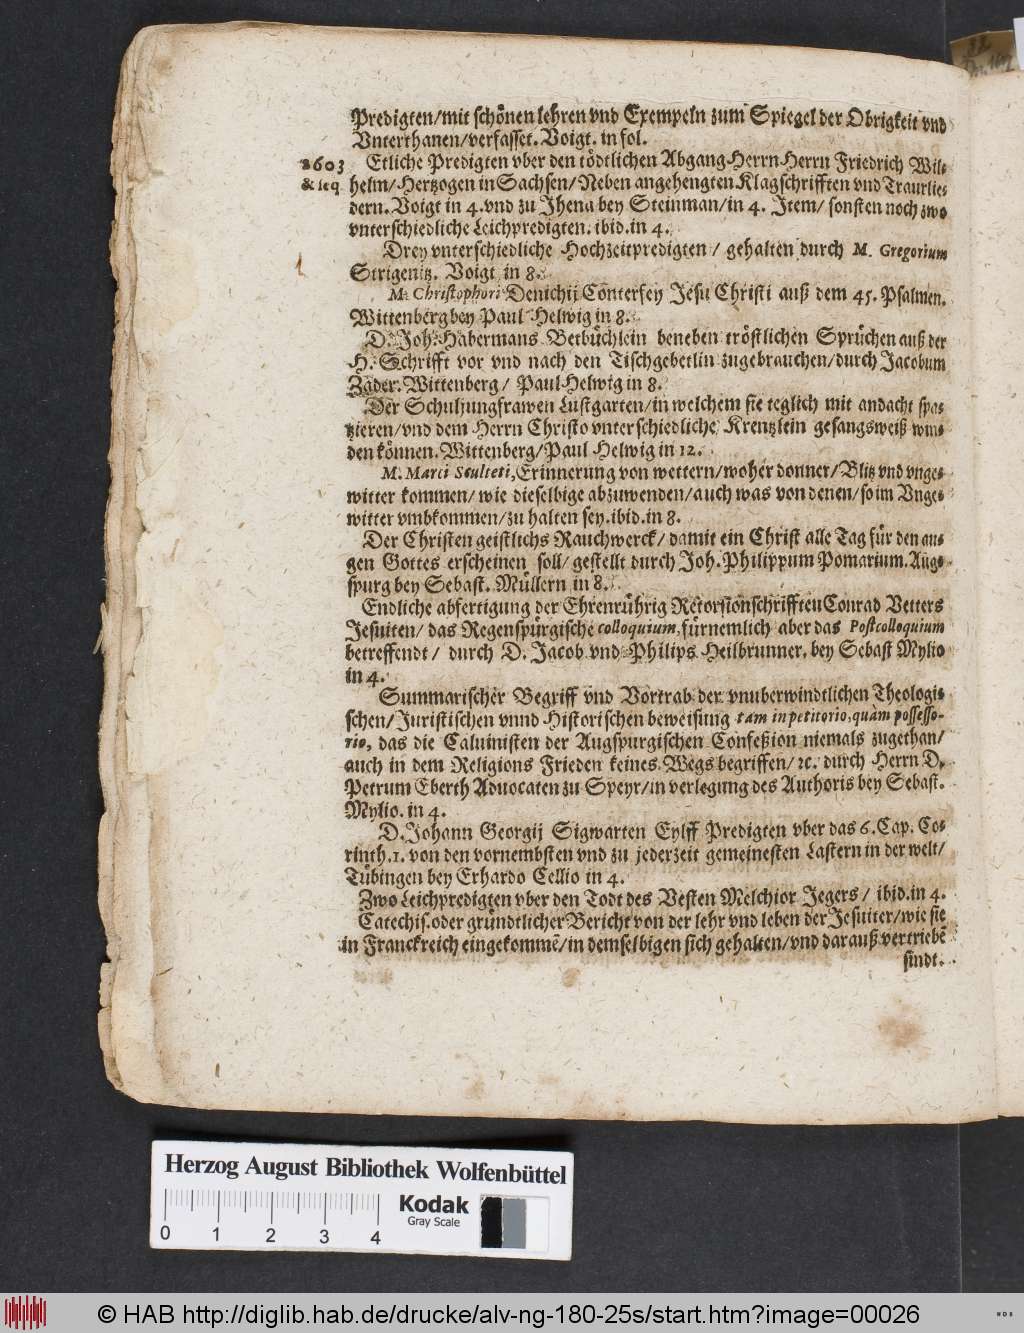 Predigten/mit schönen lehren vnd Exempeln zum Spiegel der Obrigkeit vnd
Vnterthanen/verfasset. Voigt. in fol.
1603 Etliche Predigten vber den tödtlichen Abgang Herrn Herrn Friedrich Wil-
& seq helm/Hertzogen in Sachsen/Neben angehengten Klagschrifften vnd Traurlie-
dern. Voigt in 4. vnd zu Jhena bey Steinman/in 4. Item/ sonsten noch zwo
vnterschiedliche Leichpredigten. ibid. in 4.
Drey vnterschiedliche Hochzeitpredigten/ gehalten durch M. Gregorium
Strigenitz. Voigt in 8.
M. Christophori Denichij Conterfey Jesu Christi auß dem 45. Psalmen.
Wittenberg bey Paul Helwig in 8.
D. Joh. Habermans Betbüchlein beneben tröstlichen Sprüchen auß der
H. Schrifft vor vnd nach den Tischgebetlin zugebrauchen/durch Jacobum
Zäder. Wittenberg/ Paul Helwig in 8.
Der Schuljungfrawen Lustgarten/in welchem sie teglich mit andacht spa-
tzieren/vnd dem Herrn Christo vnterschiedliche Krentzlein gesangsweiß win-
den können. Wittenberg/Paul Helwig in 12.
M. Marci Sculteti, Erinnerung von wettern/woher donner/Blitz vnd vnge-
witter kommen/ wie dieselbige abzuwenden/auch was von denen/so im Vnge-
witter vmbkommen/zu halten sey. ibid. in 8.
Der Christen geistlichs Rauchwerck/ damit ein Christ alle Tag für den au-
gen Gottes erscheinen soll/ gestellt durch Joh. Philippum Pomarium. Aug-
spurg bey Sebast. Müllern in 8.
Endliche abfertigung der Ehrenrührig Retorsionschrifften Conrad Vetters
Jesuiten/ das Regenspürgische colloquium, fürnemlich aber das Postcolloquium
betreffendt/ durch D. Jacob vnd Philips Heilbrunner. bey Sebast Mylio
in 4.
Summarischer Begriff vnd Vortrab der vnuberwindtlichen Theologi-
schen/Juristischen vnnd Historischen beweisung tam in petitorio, quàm possesso-
rio, das die Caluinisten der Augspurgischen Confeßion niemals zugethan/
auch in dem Religions Frieden keines Wegs begriffen/ ꝛc. durch Herrn D.
Petrum Eberth Aduocaten zu Speyr/in verlegung des Authoris bey Sebast.
Mylio. in 4.
D. Johann Georgij Sigwarten Eylff Predigten vber das 6. Cap. Co-
rinth. 1. von den vornembsten vnd zu jederzeit gemeinesten Lastern in der welt/
Tübingen bey Erhardo Cellio in 4.
Zwo Leichpredigten vber den Todt des Vesten Melchior Jegers/ ibid. in 4.
Catechis. oder gründtlicher Bericht von der lehr vnd leben der Jesuiter/wie sie
in Franckreich eingekommē/in demselbigen sich gehalten/vnd darauß vertriebē
sindt.
Herzog August Bibliothek Wolfenbüttel
Kodak
Gray Scale
0 1 2 3 4
© HAB http://diglib.hab.de/drucke/alv-ng-180-25s/start.htm?image=00026